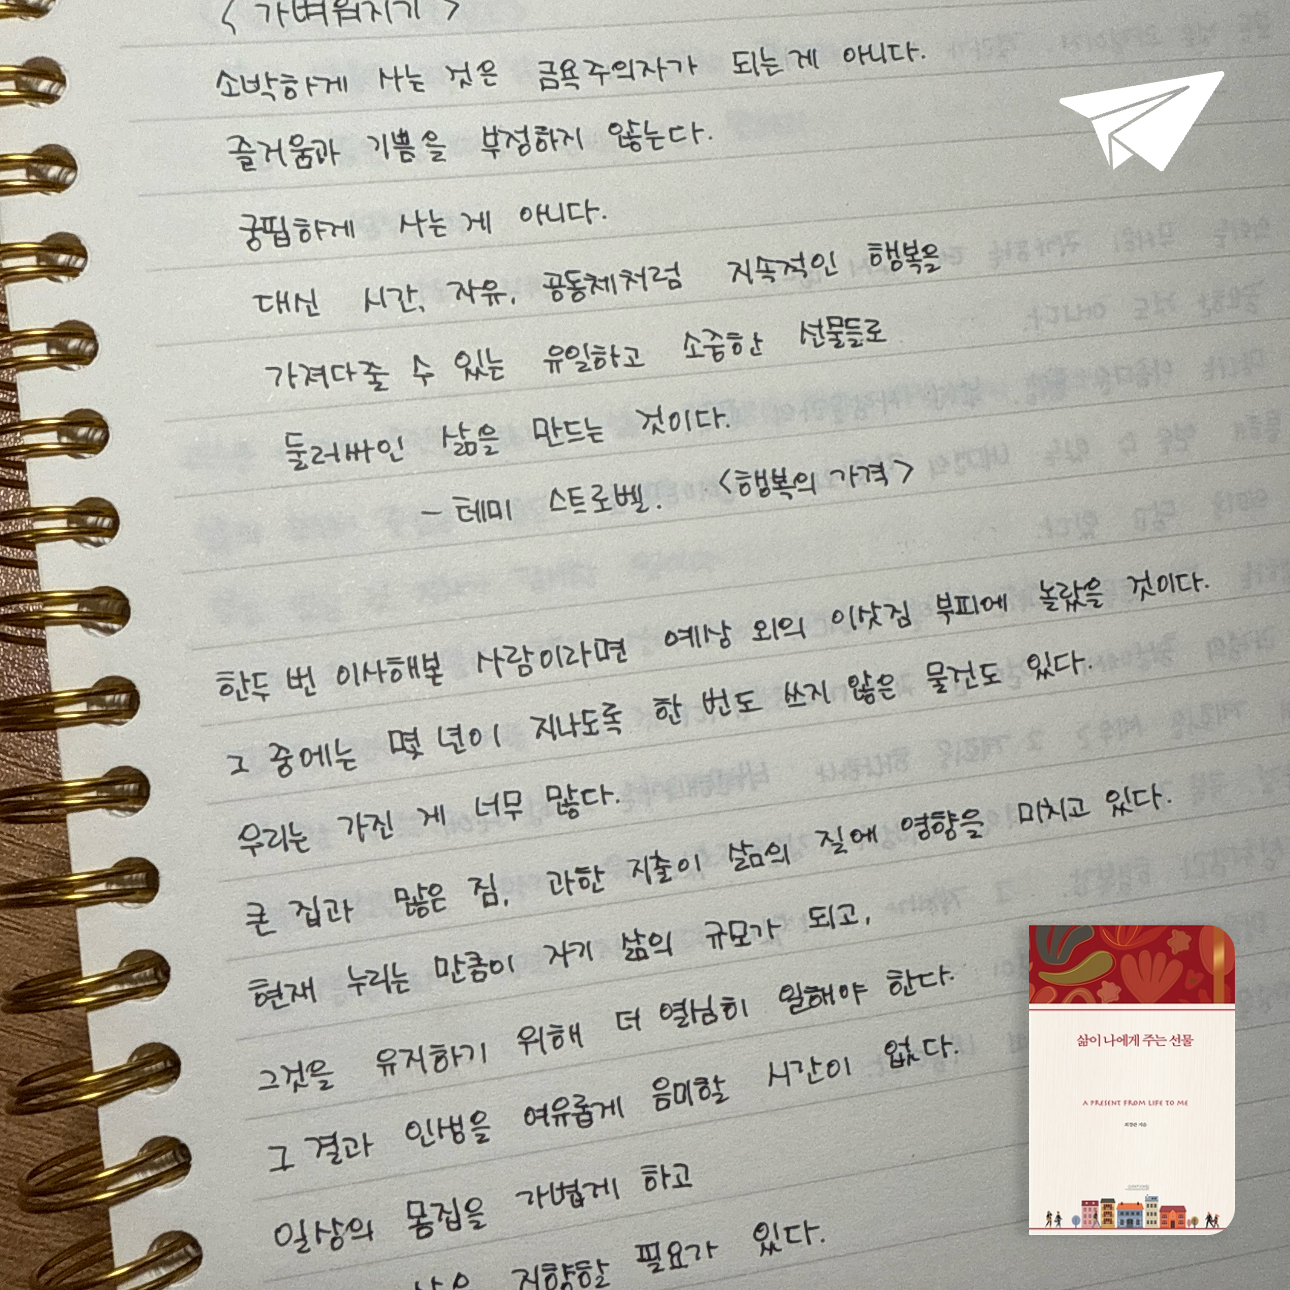 < 가벼워지기 >
소박하게 사는 것은 금욕주의자가 되는게 아니다.
즐거움과 기쁨을 부정하지 않는다.
궁핍하게 사는게 아니다.
대신 시간, 자유, 공동체처럼 지속적인 행복을
가져다줄 수 있는 유일하고 소중한 선물들로
둘러싸인 삶을 만드는 것이다.
- 테미 스트로벨. <행복의 가격>
한두 번 이사해본 사람이라면 예상 외의 이삿짐 부피에 놀랐을 것이다.
그 중에는 몇 년이 지나도록 한 번도 쓰지 않은 물건도 있다.
우리는 가진 게 너무 많다.
큰 집과 많은 짐, 과한 지출이 삶의 질에 영향을 미치고 있다.
현재 누리는 만큼이 자기 삶의 규모가 되고,
그것을 유지하기 위해 더 열심히 일해야 한다.
그 결과 인생을 여유롭게 음미할 시간이 없다.
일상의 몸집을 가볍게 하고
삶을 지향할 필요가 있다.
삶이 나에게 주는 선물
A PRESENT FROM LIFE TO ME